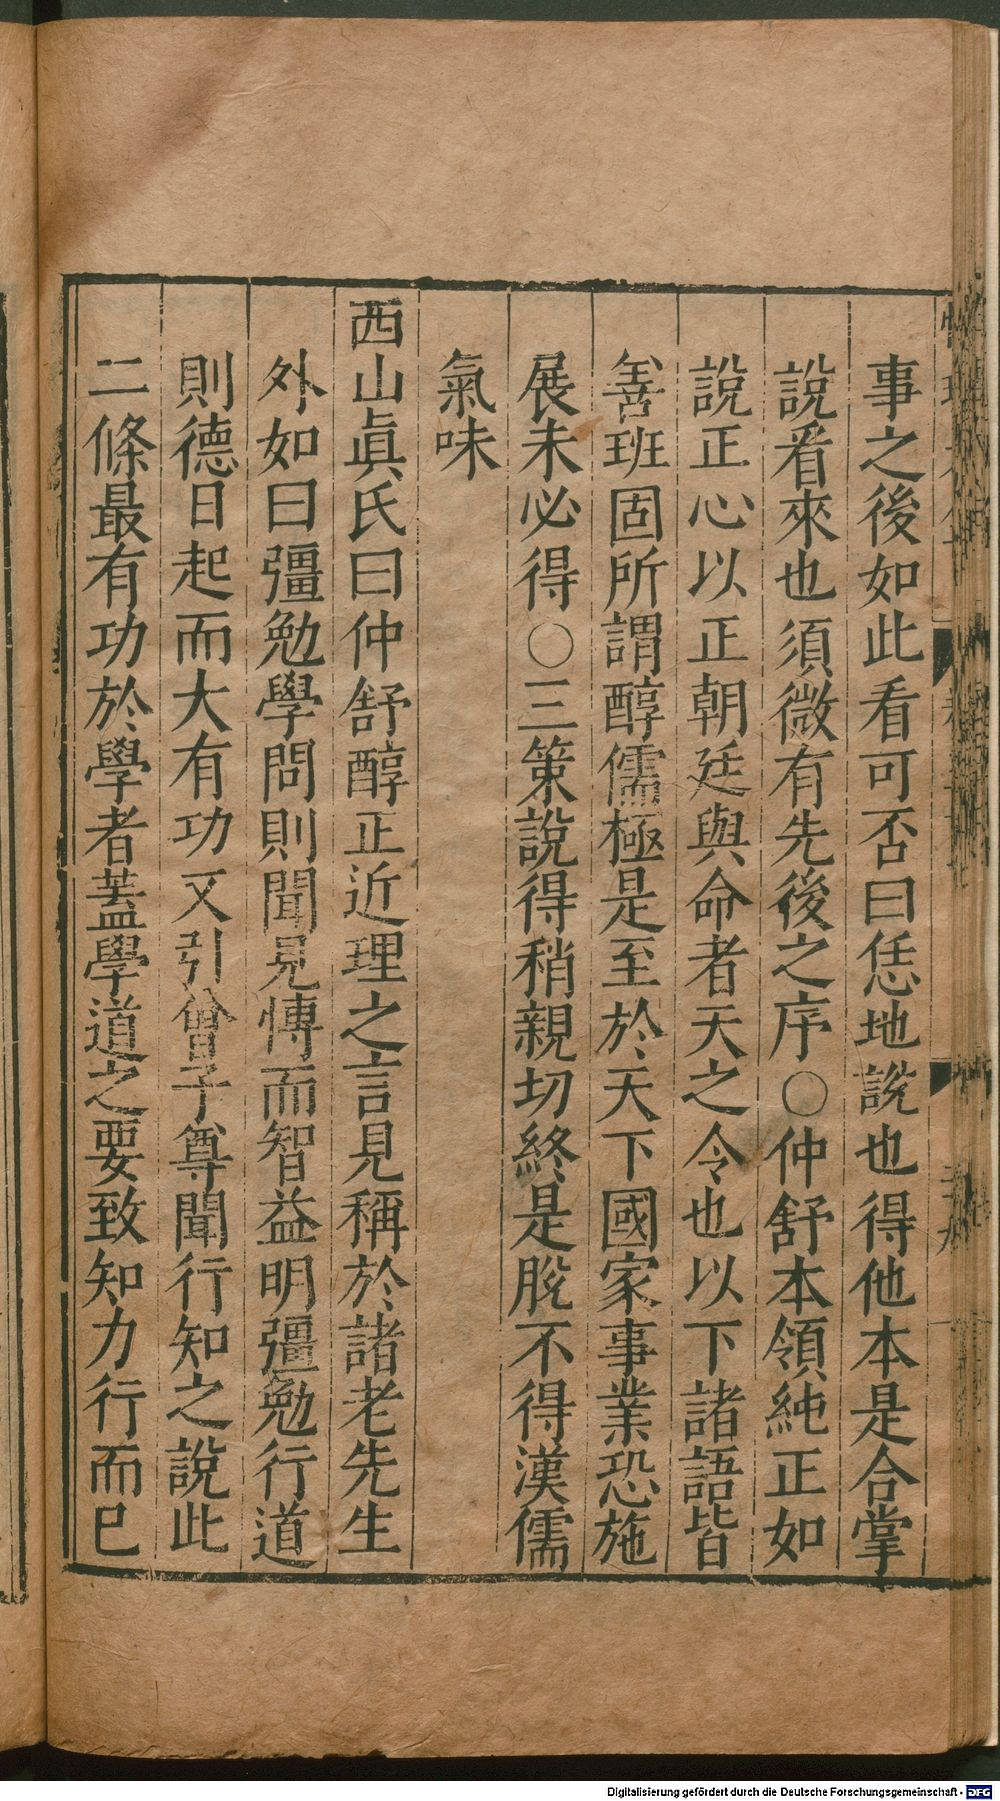 事之後如此看可否曰恁地說也得他本是合掌
說看來也須微有先後之序○仲舒本領純正如
說正心以正朝廷與命者天之令也以下諸語皆
善班固所謂醇儒極是至於天下國家事業恐施
展未必得○三策說得稍親切終是脫不得漢儒
氣味
西山眞氏曰仲舒醇正近理之言見稱於諸老先生
外如曰彊勉學問則聞見愽而智益明彊勉行道
則德日起而大有功又引曾子尊聞行知之說此
二條最有功於學者蓋學道之要致知力行而已
Digitalisierung gefördert durch die Deutsche Forschungsgemeinschaft - DFG